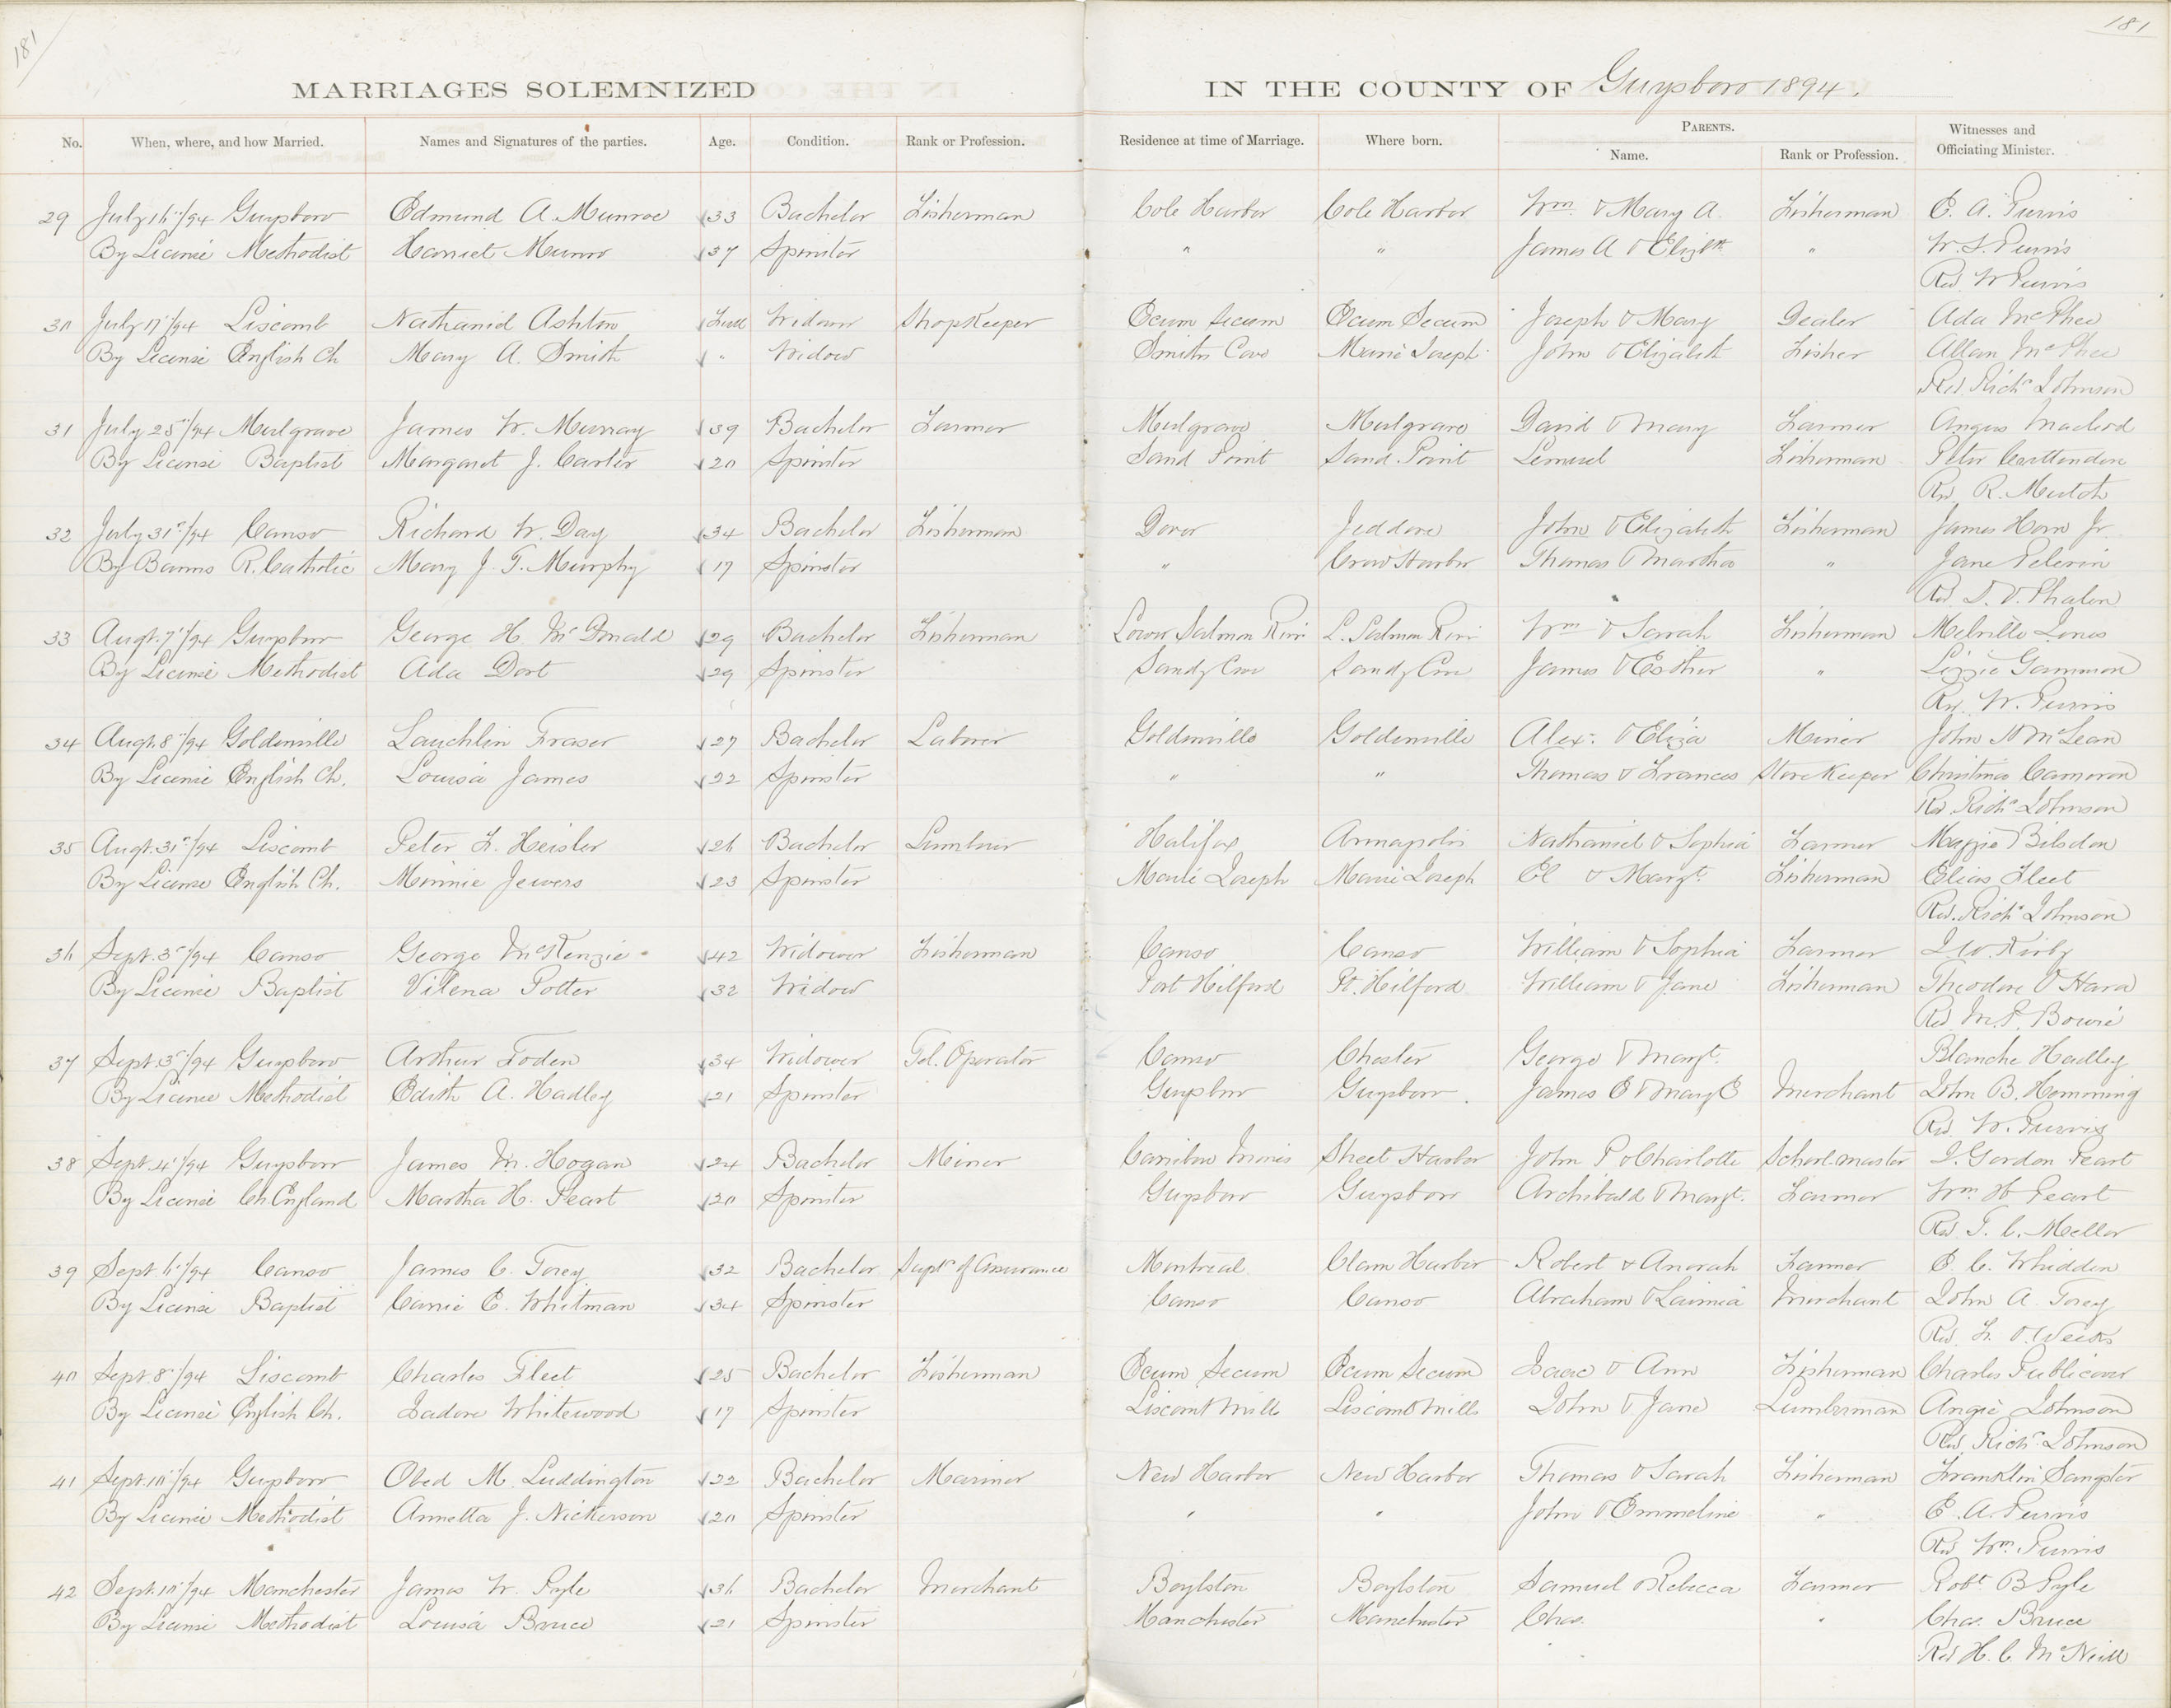 181
181
MARRIAGES SOLEMNIZED IN THE COUNTY OF Guysboro 1894.
No. When, where, and how Married. Names and Signatures of the parties. Age. Condition. Rank or Profession. Residence at time of Marriage. Where born. PARENTS. Name. Rank or Profession. Witnesses and Officiating Minister.
29 July 16"/94 Guysboro Edmund A. Munroe 33 Bachelor Fisherman Cole Harbor Cole Harbor Wm. & Mary A. Fisherman E. A. Purvis
By License Methodist Harriet Munro 37 Spinster " " James A & Elizth " W. S. Purvis
Rev W Purvis
30 July 17"/94 Liscomb Nathaniel Ashton Full Widower Shopkeeper Ecum Secum Ecum Secum Joseph & Mary Dealer Ada McPhee
By License English Ch Mary A. Smith " Widow Smiths Cove Marie Joseph John & Elizabeth Fisher Allan McPhee
Rev. Richd Johnson
31 July 25"/94 Mulgrave James W. Murray 39 Bachelor Farmer Mulgrave Mulgrave David & Mary Farmer Angus Macleod
By License Baptist Margaret J. Carter 20 Spinster Sand Point Sand Point Lemuel Fisherman Peter Carttenden
Rev R. Mutch
32 July 31"/94 Canso Richard W. Day 34 Bachelor Fisherman Dover Jeddore John & Elizabeth Fisherman James Horn Jr.
By Banns R. Catholic Mary J. T. Murphy 17 Spinster " Crow Harbor Thomas & Martha " Jane Pelerin
Rev D. V. Phalen
33 Augt. 7"/94 Guysboro George H. McDonald 29 Bachelor Fisherman Lower Salmon River L. Salmon River Wm & Sarah Fisherman Melville Jones
By License Methodist Ada Dort 29 Spinster Sandy Cove Sandy Cove James & Esther " Lizzie Gammon
Rev. W. Purvis
34 Augt. 8"/94 Goldenville Lauchlin Fraser 27 Bachelor Laborer Goldenville Goldenville Alex. & Eliza Miner John N McLean
By License English Ch. Louisa James 22 Spinster " " Thomas & Frances Store Keeper Christina Cameron
Rev Richd Johnson
35 Augt. 31"/94 Liscomb Peter F. Heisler 26 Bachelor Lumberer Halifax Annapolis Nathaniel & Sophia Farmer Maggie Bilsdon
By License English Ch. Minnie Jewers 23 Spinster Marie Joseph Marie Joseph El & Margt. Fisherman Elias Fleet
Rev. Richd Johnson
36 Sept. 3"/94 Canso George McKenzie 42 Widower Fisherman Canso Canso William & Sophia Farmer J. W. Kirby
By License Baptist Vilena Potter 32 Widow Port Hilford Pt. Hilford William & Jane Fisherman Theodore O'Hara
Rev M. P. Bowie
37 Sept. 3"/94 Guysboro Arthur Foden 34 Widower Tel. Operator Canso Chester George & Margt. Blanche Hadley
By License Methodist Edith A. Hadley 21 Spinster Guysboro Guysboro. James E & Mary E Merchant John B. Hemming
Rev W. Purvis
38 Sept. 4"/94 Guysboro James M. Hogan 24 Bachelor Miner Caribou Mines Sheet Harbor John P & Charlotte School-master J. Gordon Peart
By License Ch. England Martha H. Peart 20 Spinster Guysboro Guysboro Archibald & Margt. Farmer Wm. H Peart
Rev T. C. Mellor
39 Sept. 6"/94 Canso James C. Torey 32 Bachelor Supt. of Assurance Montreal Clam Harbor Robert & Anorah Farmer E. C. Whidden
By License Baptist Carrie E. Whitman 34 Spinster Canso Canso Abraham & Laimia Merchant John A. Torey
Rev. F. O. Weeks
40 Sept. 8"/94 Liscomb Charles Fleet 25 Bachelor Fisherman Ecum Secum Ecum Secum Isaac & Ann Fisherman Charles Publicover
By License English Ch. Isadore Whitewood 17 Spinster Liscomb Mills Liscomb Mills John & Jane Lumberman Angie Johnson
Rev. Richd Johnson
41 Sept. 10"/94 Guysboro Obed M. Luddington 22 Bachelor Mariner New Harbor New Harbor Thomas & Sarah Fisherman Franklin Sangster
By License Methodist Annetta J. Nickerson 20 Spinster " " John & Emmeline " E. A. Purvis
Rev. Wm. Purvis
42 Sept. 10"/94 Manchester James W. Pyle 36 Bachelor Merchant Boylston Boylston Samuel & Rebecca Farmer Robt. B Pyle
By License Methodist Louisa Bruce 21 Spinster Manchester Manchester Chas. " Chas. Bruce
Rev H. C. McNeill